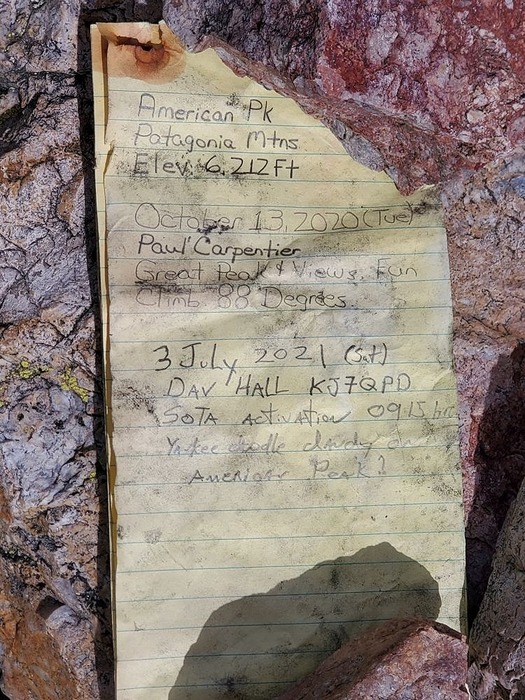 American Pk
Patagonia Mtns
Elev. 6,212Ft
October 13, 2020 (Tue)
Paul Carpentier
Great Peak & Views. Fun
Climb 88 Degrees
3 July 2021 (Sat)
DAV HALL KJ7QPD
SOTA ACTIVATION 0915 hr
Yankee doodle
American Peak!